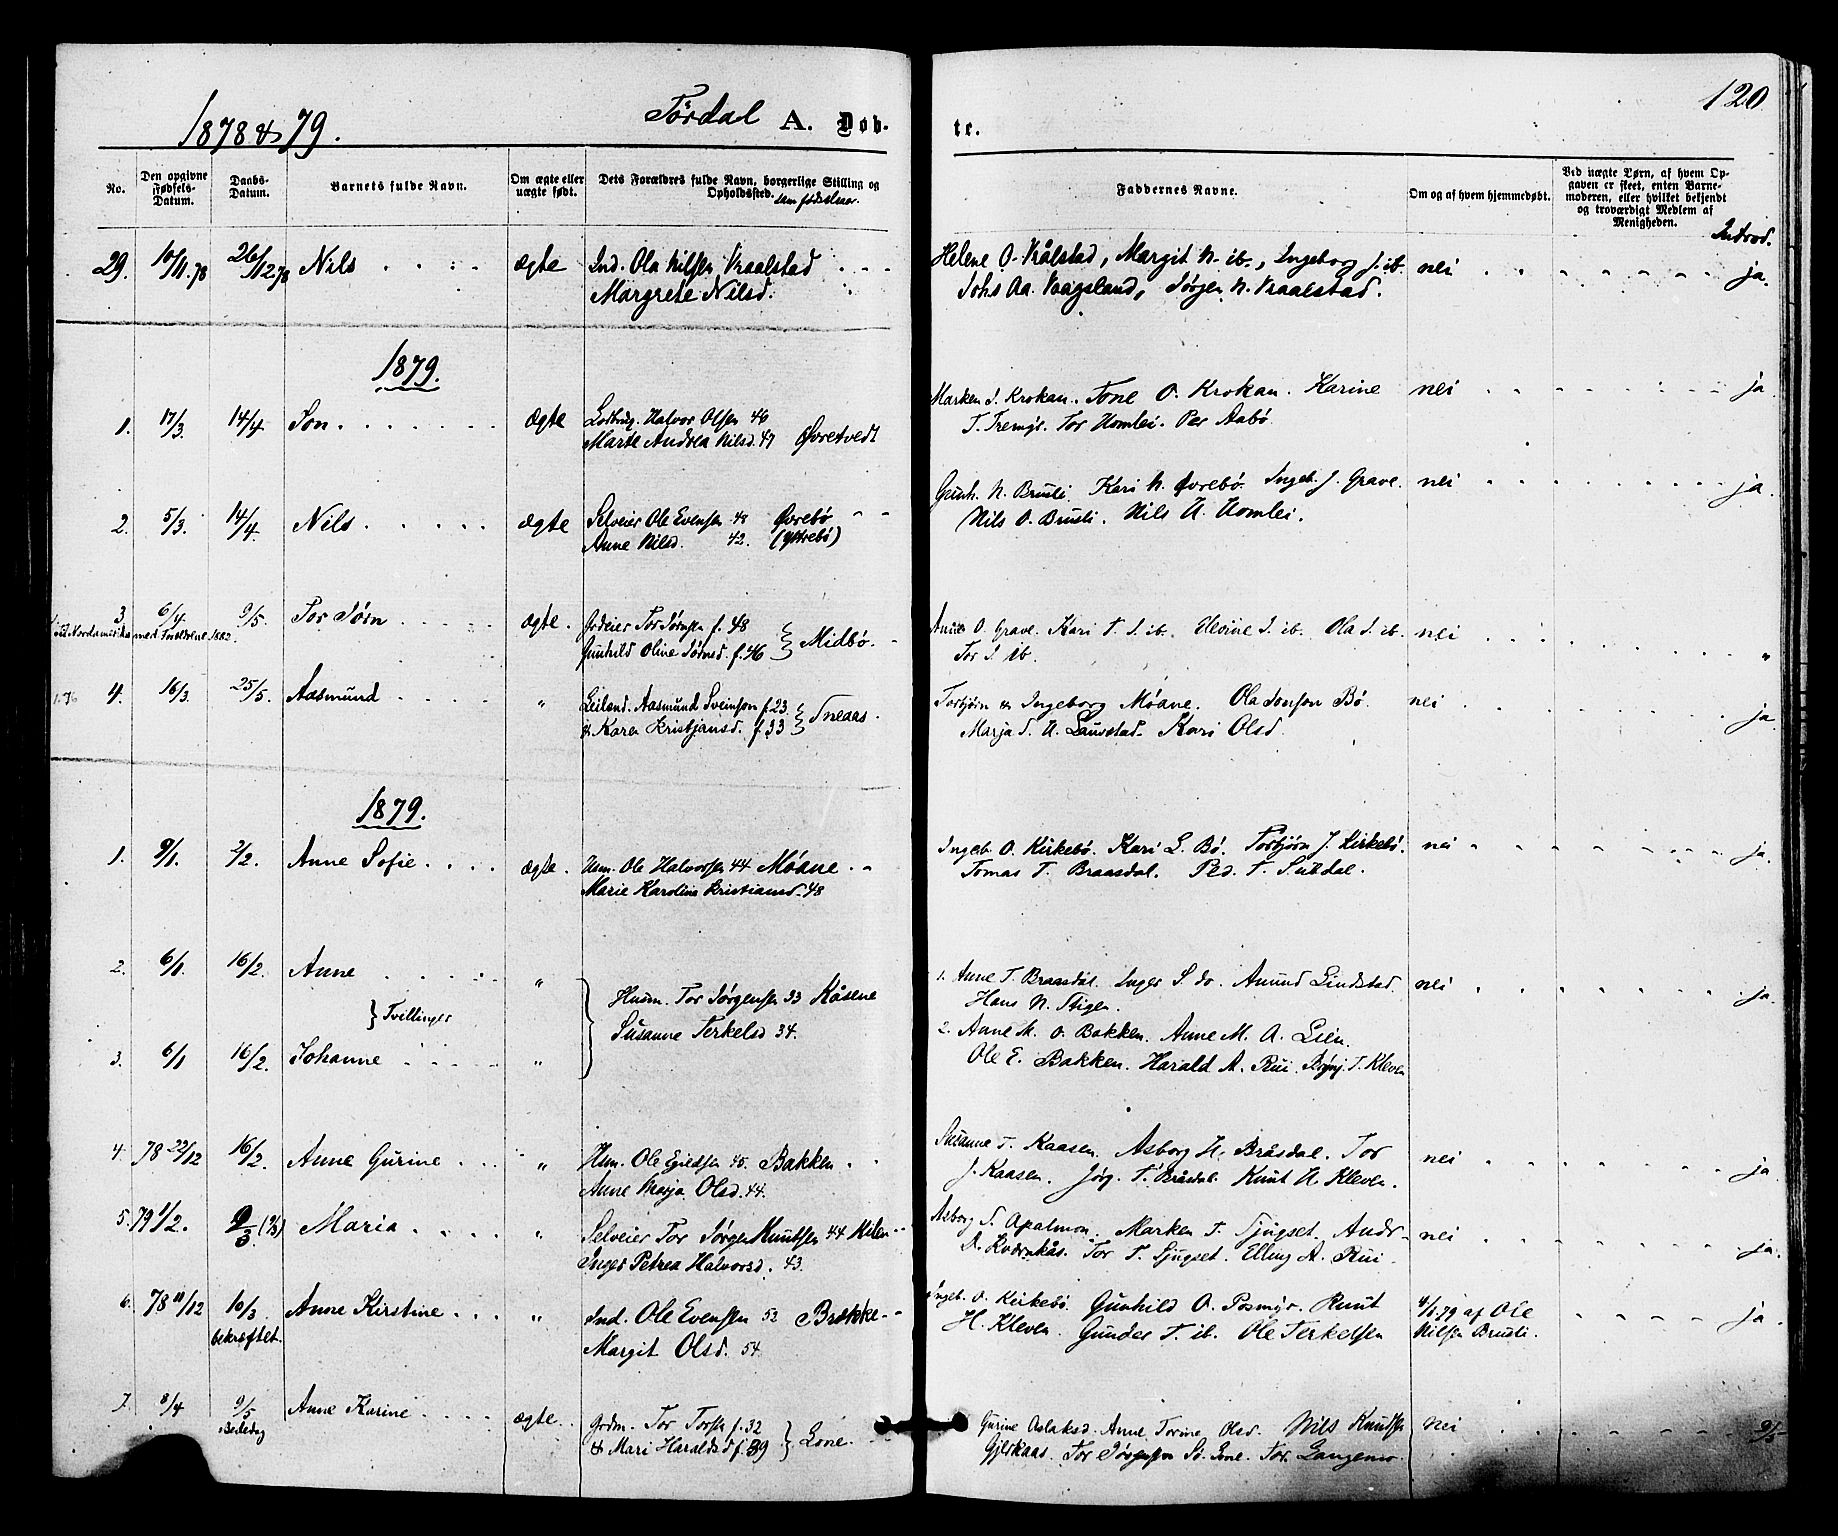 1878 & 79.
Tördal A. Døb-
te.
120
No.
Den opgivne Fødsels-Datum.
Daabs-Datum.
Barnets fulde Navn.
Om ægte eller uægte født.
Dets Forældres fulde Navn, borgerlige Stilling og Opholdssted. samt fødselsaar.
Faddernes Navne.
Om og af hvem hjemmedøbt.
Ved uægte Børn, af hvem Opgaven er skeet, enten Barnemoderen, eller hvilket bekjendt og troværdigt Medlem af Menigheden.
Introd.
29. 10/11.78 26/12 78 Nils ægte Ind. Ola Nilsen Kraalstad
Margrete Nilsd.
Helene O. KråLstad, Margit N. ib., Ingeborg J. ib. nei ja.
Johs Aa. Vaagsland, Jørgen N. Kraalstad.
1879.
1. 17/3. 14/4 Jon. ægte Halvor Olsen 46
Marte Andrea Nilsd. 47 Øvretvedt
Marken S. Krokan. Tone O. Krokan. Karine nei ja
T. Tor Homlei. Per Aabø
2. 5/3. 14/4. Nils. ægte Selveier Ole Evensen 48 Øvrebø
Anne Nilsd. 42. (Yttrebö)
Gunh. N. Brusli. Kari N. Øvrebö. Ingeb. J. Grave. nei ja.
Nils O. Brusli. Nils H. Homlei.
3 6/4 9/5. Tor Jörn ægte. Grdeier Tor Jörnsen f. 48
Til Nordamerika med Forældrene 1882.
Gunhild Oline Jörnsd. f. 46 } Midbö.
O. Grave. Kari T. S. ib. Elevine S. ib. Ola S. ib. nei "
Tor S. ib.
4. 16/3. 25/5. Aasmund " Leilend. Aasmund Sveinsen f. 23
& Karen Kristjansd. f. 33 } Sneaas.
Torbjörn & Ingeborg Möane. Ola Jonsen Bö. nei ja
Marja S. A. Laurstad. Kari Olsd
1879.
1. 9/1. 2/2. Anne Sofie. ægte. Husm. Ole Halvorsen 44 Möane
Marie Karoline Kristiansd. 48
Ingeb. O. Kirkebö. Kari L. Bø. Torbjörn J. Kirkebö. nei ja.
Tomas T. Braasdal. Ped. T. Sütdal.
2. 6/1. 16/2. Anne "
} Tvillinger
Husm. Tor Jörgensen 33 Kåsene
Susanne Terkelsd 34.
3. 6/1 16/2. Johanne "
1. Anne T. Braasdal. Inger S. do. Amund Lindstad. nei ja.
Hans N. Stigen.
2. Anne M. O. Bakken. Anne M. A. Lien.
Ole E. Bakken. Harald A. Rui. Brynj. T. Kleven
4. 78 22/12 16/2. Anne Gurine " Husm. Ole Egildsen 45. Bakken
Anne Marja Olsd. 44.
Susanne T. Kaasen. Asborg H. Bråsdal. Tor nei ja
J. Kaasen. Jörg. T. Bråsdal. Knut H. Kleven.
5. 79 1/2. 9/3. Maria " Selveier Tor Jörgen Knutsen 44
Inger Petrea Halvorsd. 43.
Asborg S. Apalmon. Marken T. Tjugset. Andr. nei ja.
D. Kvernkås. Tor T. Tjugset. Elling A. Rui.
6. 78 11/12 10/3 Anne Kirstine " Ind. Ole Evensen 52 Brække
bekræftet.
Margit Olsd. 54
Ingeb. O. Kirkebö. Gunhild O. Posmyr. Knut 4/1.79 af Ole ja
H. Kleven. Gunder T. ib. Ole Terkelsen Nilsen Brusli.
7. 8/4 9/5 Anne Karine ægte. Grdm. Tor Torsen f. 32
Bededag
& Mari Haraldsd f. 39 } Lone.
Gurine Aslaksd. Anne Torine Olsd. Nils Knudsen nei 9/5
Gjerkaas. Tor Jörgensen Tor. Langemo.